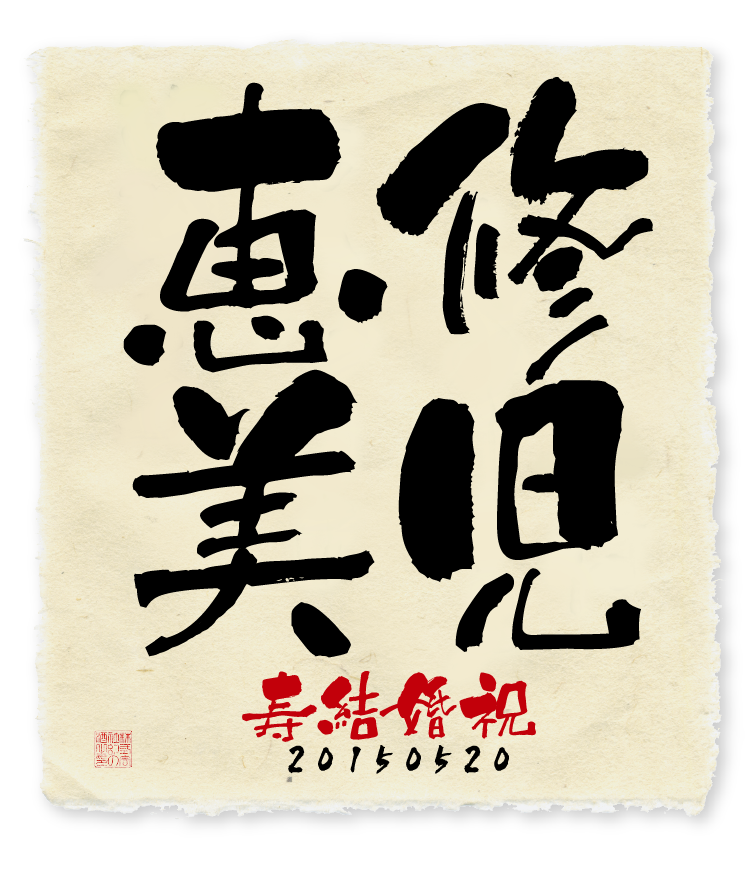 修児
恵美
寿結婚祝
20150520